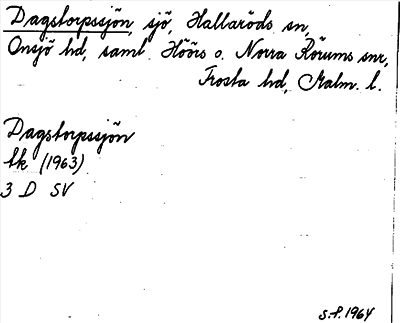 Dagstorpssjön, sjö, Hallaröds sn,
Onsjö hd, samt Höörs o. Norra Rörums snr,
Frosta hd, Malm. l.
Dagstorpssjön
tk (1963)
3 D SV
S.F. 1964